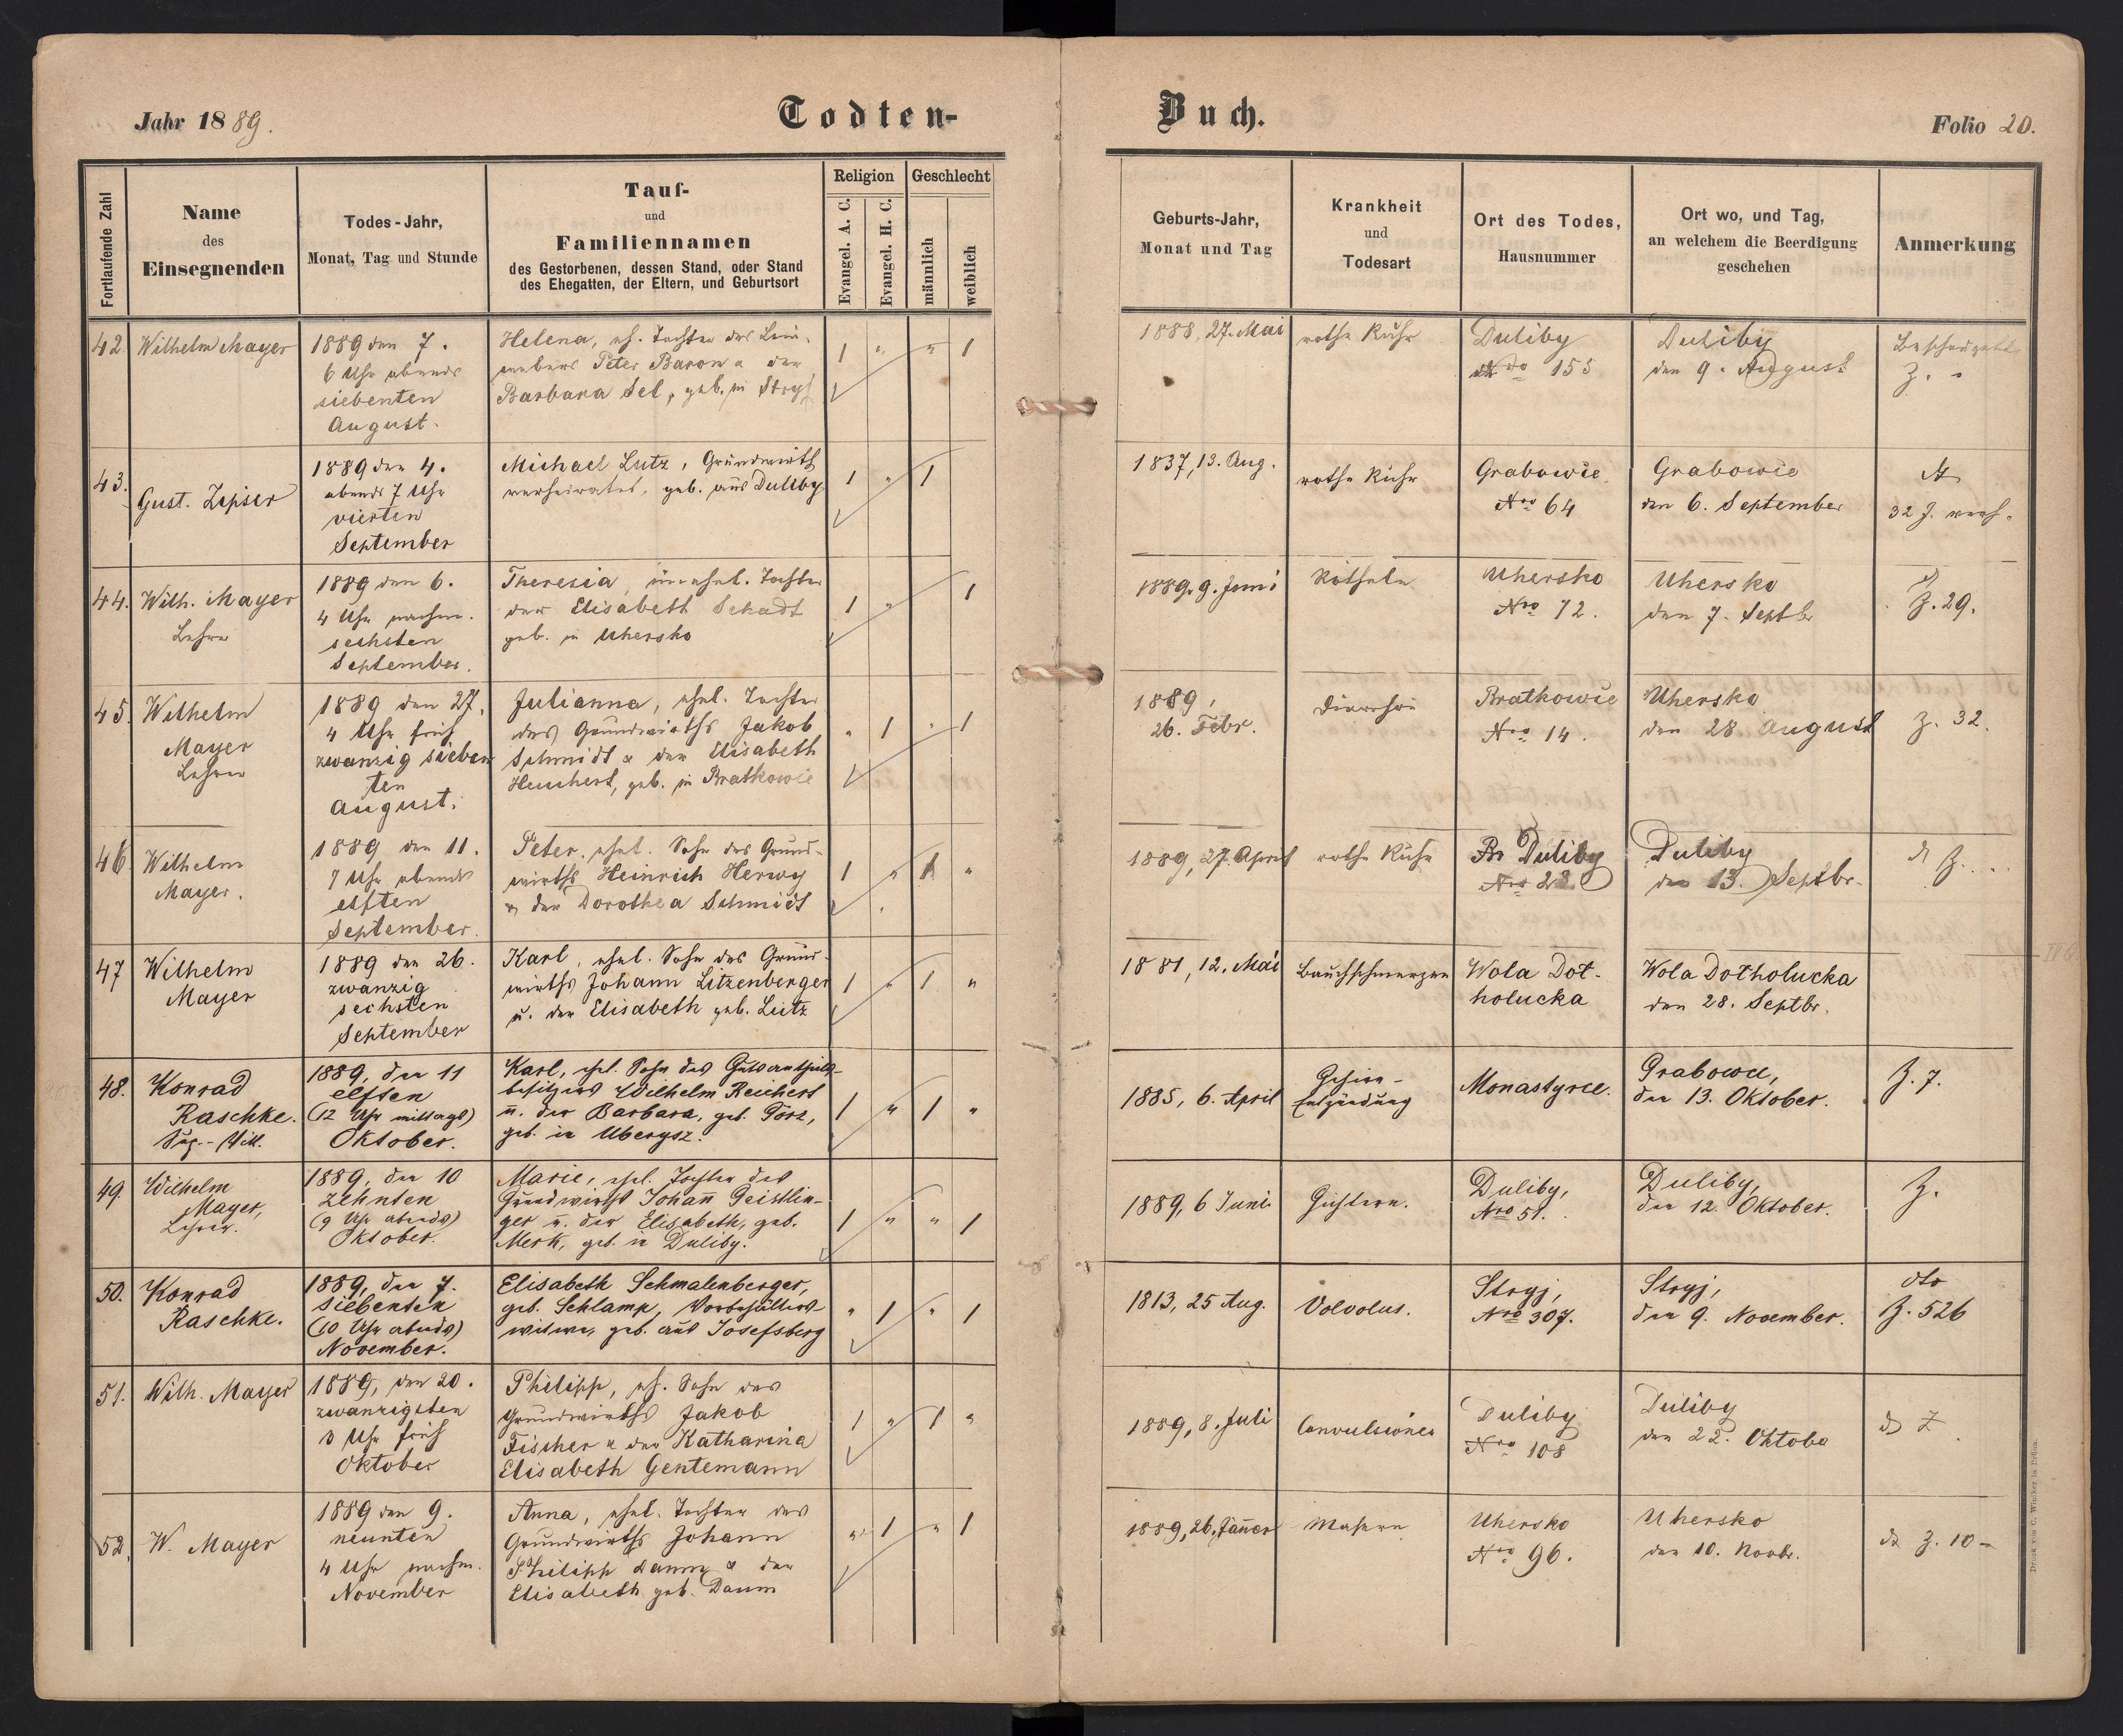 Jahr 1889.
Todten-
Fortlaufende Zahl
Name
des
Einsegnenden
Todes-Jahr,
Monat, Tag und Stunde
Tauf-
und
Familiennamen
des Gestorbenen, dessen Stand, oder Stand
des Ehegatten, der Eltern, und Geburtsort
Religion
Evangel. A. C.
Evangel. H. C.
Geschlecht
männlich
weiblich
42.
Wilhelm Mayer
1889 den 7.
6 Uhr abends
siebenten
August.
Helena, eh. Tochter des Lein-
webers Peter Baron u der
Barbara Sel, geb. in Stryj
1 " " 1
43.
Gust. Zipser
1889 den 4.
abends 7 Uhr
vierten
September
Michael Lutz, Grundwirth
verheiratet, geb. aus Duliby
1 " 1
44.
Wilh. Mayer
Lehrer
1889 den 6.
4 Uhr nachm.
sechsten
September.
Theresia, unehel. Tochter
der Elisabeth Schadt
geb. in Uhersko
1 " 1
45.
Wilhelm
Mayer
Lehrer
1889 den 27.
4 Uhr früh
zwanzig sieben
ten
August.
Julianna, ehel. Tochter
des Grundwirths Jakob
Schmidt u der Elisabeth
geb. in Bratkowie
" 1 " 1
46.
Wilhelm
Mayer.
1889 den 11.
7 Uhr abends
elften
September.
Peter, ehel. Sohn des Grund-
wirths Heinrich Herwy
u der Dorothea Schmidt
1 " 1 "
47
Wilhelm
Mayer
1889 den 26.
zwanzig
sechsten
September
Karl, ehel. Sohn des Grund-
wirths Johann Litzenberger
u. der Elisabeth geb. Lutz
1 " 1 "
48.
Konrad
Raschke.
1889, den 11
elften
(12 Uhr mittags)
Oktober.
Karl, ehel. Sohn des Gutsantheils-
besitzers Wilhelm Reichert
u. der Barbara, geb. Görz,
geb. in Ubergsz.
1 " 1 "
49.
Wilhelm
Mayer,
Lehrer.
1889, den 10
zehnten
(9 Uhr abends)
Oktober.
Marie, ehel. Tochter des
Grundwirths Johañ Geistlin-
ger u. der Elisabeth, geb.
Merk, geb. in Duliby.
1 " " 1
50.
Konrad
Raschke.
1889, den 7.
siebenten
(10 Uhr abends)
November.
Elisabeth Schmalenberger,
geb. Schlamp,
witwe, geb. aus Josefsberg
" 1 " 1
51.
Wilh. Mayer
1889, den 20.
zwanzigsten
3 Uhr früh
Oktober
Philipp, eh. Sohn des
Grundwirths Jakob
Fischer u der Katharina
Elisabeth Gentemann
1 " 1 "
52.
W. Mayer
1889 den 9.
neunten
4 Uhr nachm.
November
Anna, ehel. Tochter des
Grundwirths Johann
Philipp Lamm u der
Elisabeth geb. Daum
" 1 " 1
Buch.
Folio 20.
Geburts-Jahr,
Monat und Tag
Krankheit
und
Todesart
Ort des Todes,
Hausnummer
Ort wo, und Tag,
an welchem die Beerdigung
geschehen
Anmerkung
1888, 27. Mai
rothe Ruhr
Duliby
No 155
Duliby
den 9. August
Z. "
1837, 13. Aug.
rothe Ruhr
Grabowie
Nro 64
Grabowie
den 6. September
32 J. verh.
1889, 9. Juni
Rötheln
Uhersko
Nro 72.
Uhersko
den 7. Septbr
Z. 29.
1889,
26. Febr.
Diarrhöe
Bratkowie
Nro 14.
Uhersko
den 28. August
Z. 32.
1889, 27. April
rothe Ruhr
Duliby
Nro 28
Duliby
den 13. Septbr.
Z.
1881, 12. Mai
Bauchschmerzen
Wola Dot-
holucka
Wola Dotholucka
den 28. Septbr.
1885, 6. April
Gehirn-
Entzündung
Monastyrce.
Grabowce,
den 13. Oktober.
Z. 7.
1889, 6 Juni
Gichtern.
Duliby,
Nro 51.
Duliby,
den 12. Oktober.
Z.
1813, 25 Aug.
Volvolus.
Stryj,
Nro 307.
Stryj,
den 9. November.
dto
Z. 526
1889, 8. Juli
Convulsionen
Duliby
Nro 108
Duliby
den 22. Oktober
Z.
1889, 26. Jäner
Masern
Uhersko
Nro 96.
Uhersko
den 10. Novbr.
Z. 10
Druck von C. Winiker in Brünn.